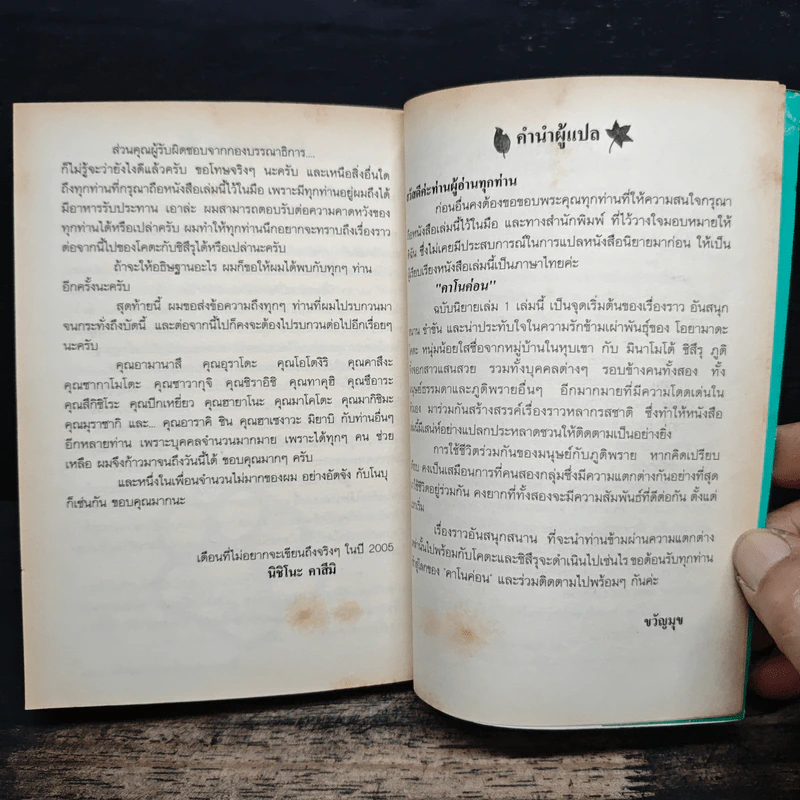 ส่วนคุณผู้รับผิดชอบจากกองบรรณาธิการ....
ก็ไม่รู้จะว่ายังไงดีแล้วครับ ขอโทษจริงๆ นะครับ และเหนือสิ่งอื่นใด
ถึงทุกท่านที่กรุณาถือหนังสือเล่มนี้ไว้ในมือ เพราะมีทุกท่านอยู่ผมถึงได้
มีอาหารรับประทาน เอาล่ะ ผมสามารถตอบรับต่อความคาดหวังของ
ทุกท่านได้หรือเปล่าครับ ผมทำให้ทุกท่านนึกอยากจะทราบถึงเรื่องราว
ต่อจากนี้ไปของโคตะกับชิสึรุได้หรือเปล่านะครับ
ถ้าจะให้อธิษฐานอะไร ผมก็ขอให้ผมได้พบกับทุกๆ ท่าน
อีกครั้งนะครับ
สุดท้ายนี้ ผมขอส่งข้อความถึงทุกๆ ท่านที่ผมไปรบกวนมา
จนกระทั่งถึงบัดนี้ และต่อจากนี้ไปก็คงจะต้องไปรบกวนต่อไปอีกเรื่อยๆ
นะครับ
คุณอามานาสึ คุณอุราโตะ คุณโอโตงิริ คุณคาสึงะ
คุณซากาโมโตะ คุณซาวากุจิ คุณชิราอิชิ คุณทาคุฮิ คุณชีอาระ
คุณสึกิชิโระ คุณบึกเหยี่ยว คุณฮายาโนะ คุณมาโคโตะ คุณมากิชิมะ
คุณมุราซากิ และ... คุณอาราคิ ชิน คุณฮาเซงาวะ มิยาบิ กับท่านอื่นๆ
อีกหลายท่าน เพราะบุคคลจำนวนมากมาย เพราะได้ทุกๆ คน ช่วย
เหลือ ผมจึงก้าวมาจนถึงวันนี้ได้ ขอบคุณมากๆ ครับ
และหนึ่งในเพื่อนจำนวนไม่มากของผม อย่างอัตจัง กับโนบุ
ก็เช่นกัน ขอบคุณมากนะ
เดือนที่ไม่อยากจะเขียนถึงจริงๆ ในปี 2005
นิชิโนะ คาสึมิ
คำนำผู้แปล
สวัสดีค่ะท่านผู้อ่านทุกท่าน
ก่อนอื่นคงต้องขอขอบพระคุณทุกท่านที่ให้ความสนใจกรุณา
ถือหนังสือเล่มนี้ไว้ในมือ และทางสำนักพิมพ์ ที่ไว้วางใจมอบหมายให้
ดิฉัน ซึ่งไม่เคยมีประสบการณ์ในการแปลหนังสือนิยายมาก่อน ให้เป็น
ผู้เรียบเรียงหนังสือเล่มนี้เป็นภาษาไทยค่ะ
"คาโนค่อน"
ฉบับนิยายเล่ม 1 เล่มนี้ เป็นจุดเริ่มต้นของเรื่องราว อันสนุก
สนาน ขำขัน และน่าประทับใจในความรักข้ามเผ่าพันธุ์ของ โอยามาดะ
โคตะ หนุ่มน้อยใสซื่อจากหมู่บ้านในหุบเขา กับ มินาโมโต้ ชิสึรุ ภูติ
จิ้งจอกสาวแสนสวย รวมทั้งบุคคลต่างๆ รอบข้างคนทั้งสอง ทั้ง
มนุษย์ธรรมดาและภูติพรายอื่นๆ อีกมากมายที่มีความโดดเด่นใน
ตนเอง มาร่วมกันสร้างสรรค์เรื่องราวหลากรสชาติ ซึ่งทำให้หนังสือ
เล่มนี้มีเสน่ห์อย่างแปลกประหลาดชวนให้ติดตามเป็นอย่างยิ่ง
การใช้ชีวิตร่วมกันของมนุษย์กับภูติพราย หากคิดเปรียบ
เทียบ คงเป็นเสมือนการที่คนสองกลุ่มซึ่งมีความแตกต่างกันอย่างที่สุด
มาใช้ชีวิตอยู่ร่วมกัน คงยากที่ทั้งสองจะมีความสัมพันธ์ที่ดีต่อกัน ตั้งแต่
แรกเริ่ม
เรื่องราวอันสนุกสนาน ที่จะนำท่านข้ามผ่านความแตกต่าง
เหล่านั้นไปพร้อมกับโคตะและชิสึรุจะดำเนินไปเช่นไร ขอต้อนรับทุกท่าน
เข้าสู่โลกของ "คาโนค่อน" และร่วมติดตามไปพร้อมๆ กันค่ะ
ขวัญมุข